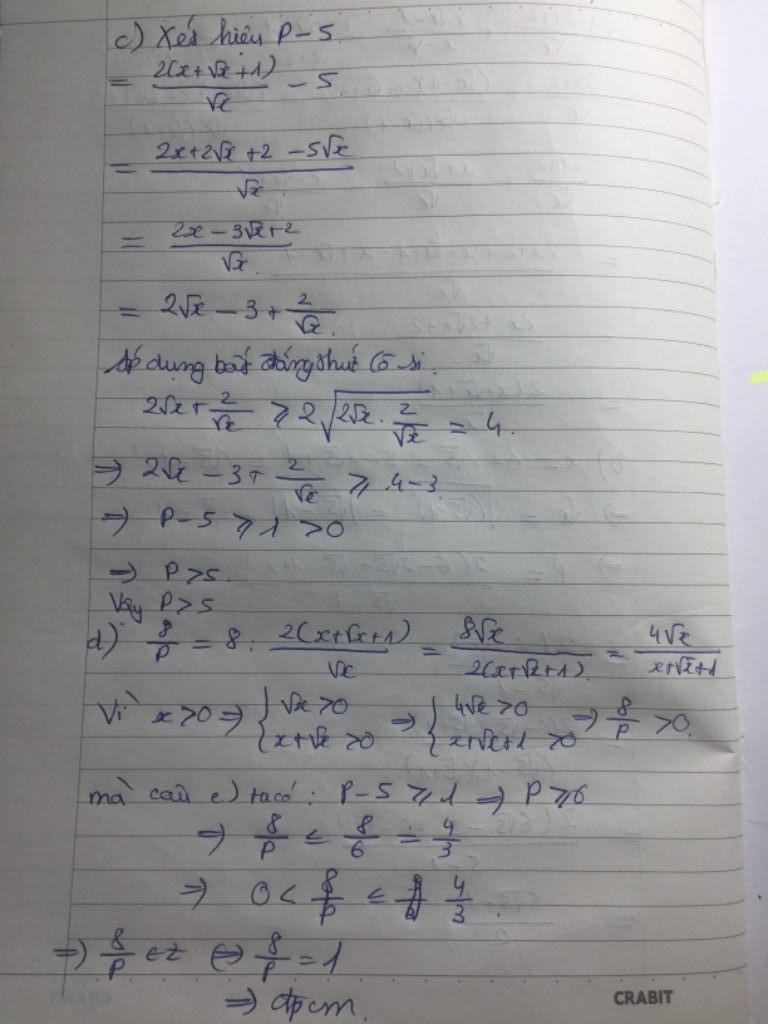 c) Xét hiệu P - 5
= \frac{2(x+√x+1)}{√x} - 5
= \frac{2x+2√x+2-5√x}{√x}
= \frac{2x-3√x+2}{√x}
= 2√x - 3 + \frac{2}{√x}
Áp dụng bất đẳng thức Cô si
2√x + \frac{2}{√x} ≥ 2\sqrt{2√x . \frac{2}{√x}} = 4.
=> 2√x - 3 + \frac{2}{√x} ≥ 4-3
=> P-5 ≥ 1 > 0
=> P > 5.
Vậy P > 5
d) \frac{8}{P} = 8 : \frac{2(x+√x+1)}{√x} = \frac{8√x}{2(x+√x+1)} = \frac{4√x}{x+√x+1}
Vì x>0 => { √x > 0 ; x+√x > 0 => { 4√x > 0 ; x+√x+1 > 0 => \frac{8}{P} > 0.
mà câu c) ta có : P-5 ≥ 1 => P ≥ 6
=> \frac{8}{P} ≤ \frac{8}{6} = \frac{4}{3}
=> 0 < \frac{8}{P} ≤ \frac{4}{3}
=> \frac{8}{P} ∈ Z <=> \frac{8}{P} = 1
=> đpcm.
CRABIT